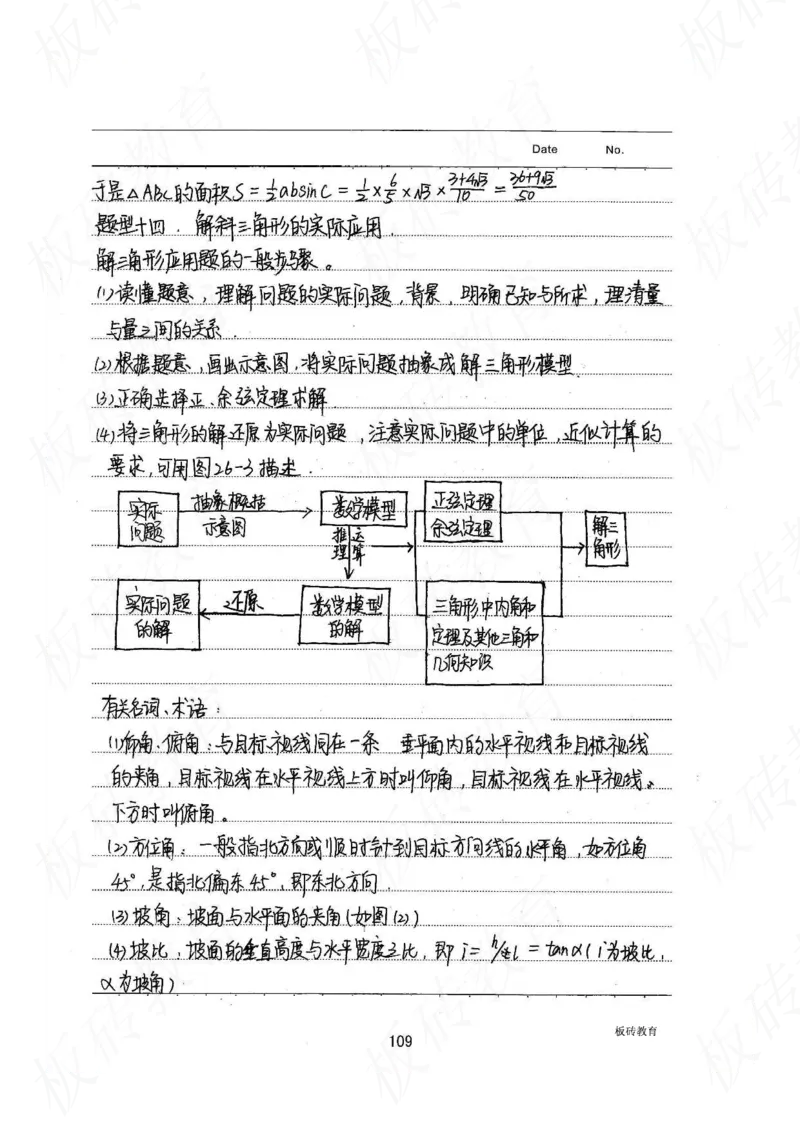 Date No.
于是△ABC的面积S=½absinC=½×6/5×√3×(3+4√3)/10=(36+9√3)/50
题型十四．解斜三角形的实际应用．
解三角形应用题的一般步骤。
(1)读懂题意，理解问题的实际问题，背景，明确已知与所求，理清量
与量之间的关系．
(2)根据题意，画出示意图，将实际问题抽象成解三角形模型．
(3)正确选择正、余弦定理求解．
(4)将三角形的解还原为实际问题，注意实际问题中的单位，近似计算的
要求，可用图26-3描述．
实际
问题
抽象概括
示意图
数学模型
推理
运算
正弦定理
余弦定理
解三
角形
实际问题
的解
还原
数学模型
的解
三角形中内角和
定理及其他三角和
几何知识
有关名词、术语：
(1)仰角、俯角：与目标视线同在一条 垂平面内的水平视线和目标视线
的夹角，目标视线在水平视线上方时叫仰角，目标视线在水平视线。
下方时叫俯角。
(2)方位角：一般指北方向或顺时针到目标方向线的水平角，如方位角
45°，是指北偏东45°，即东北方向．
(3)坡角：坡面与水平面的夹角(如图(2))
(4)坡比：坡面的垂直高度与水平宽度之比，即i=h/l=tanα(i为坡比，
α为坡角)
109
板砖教育